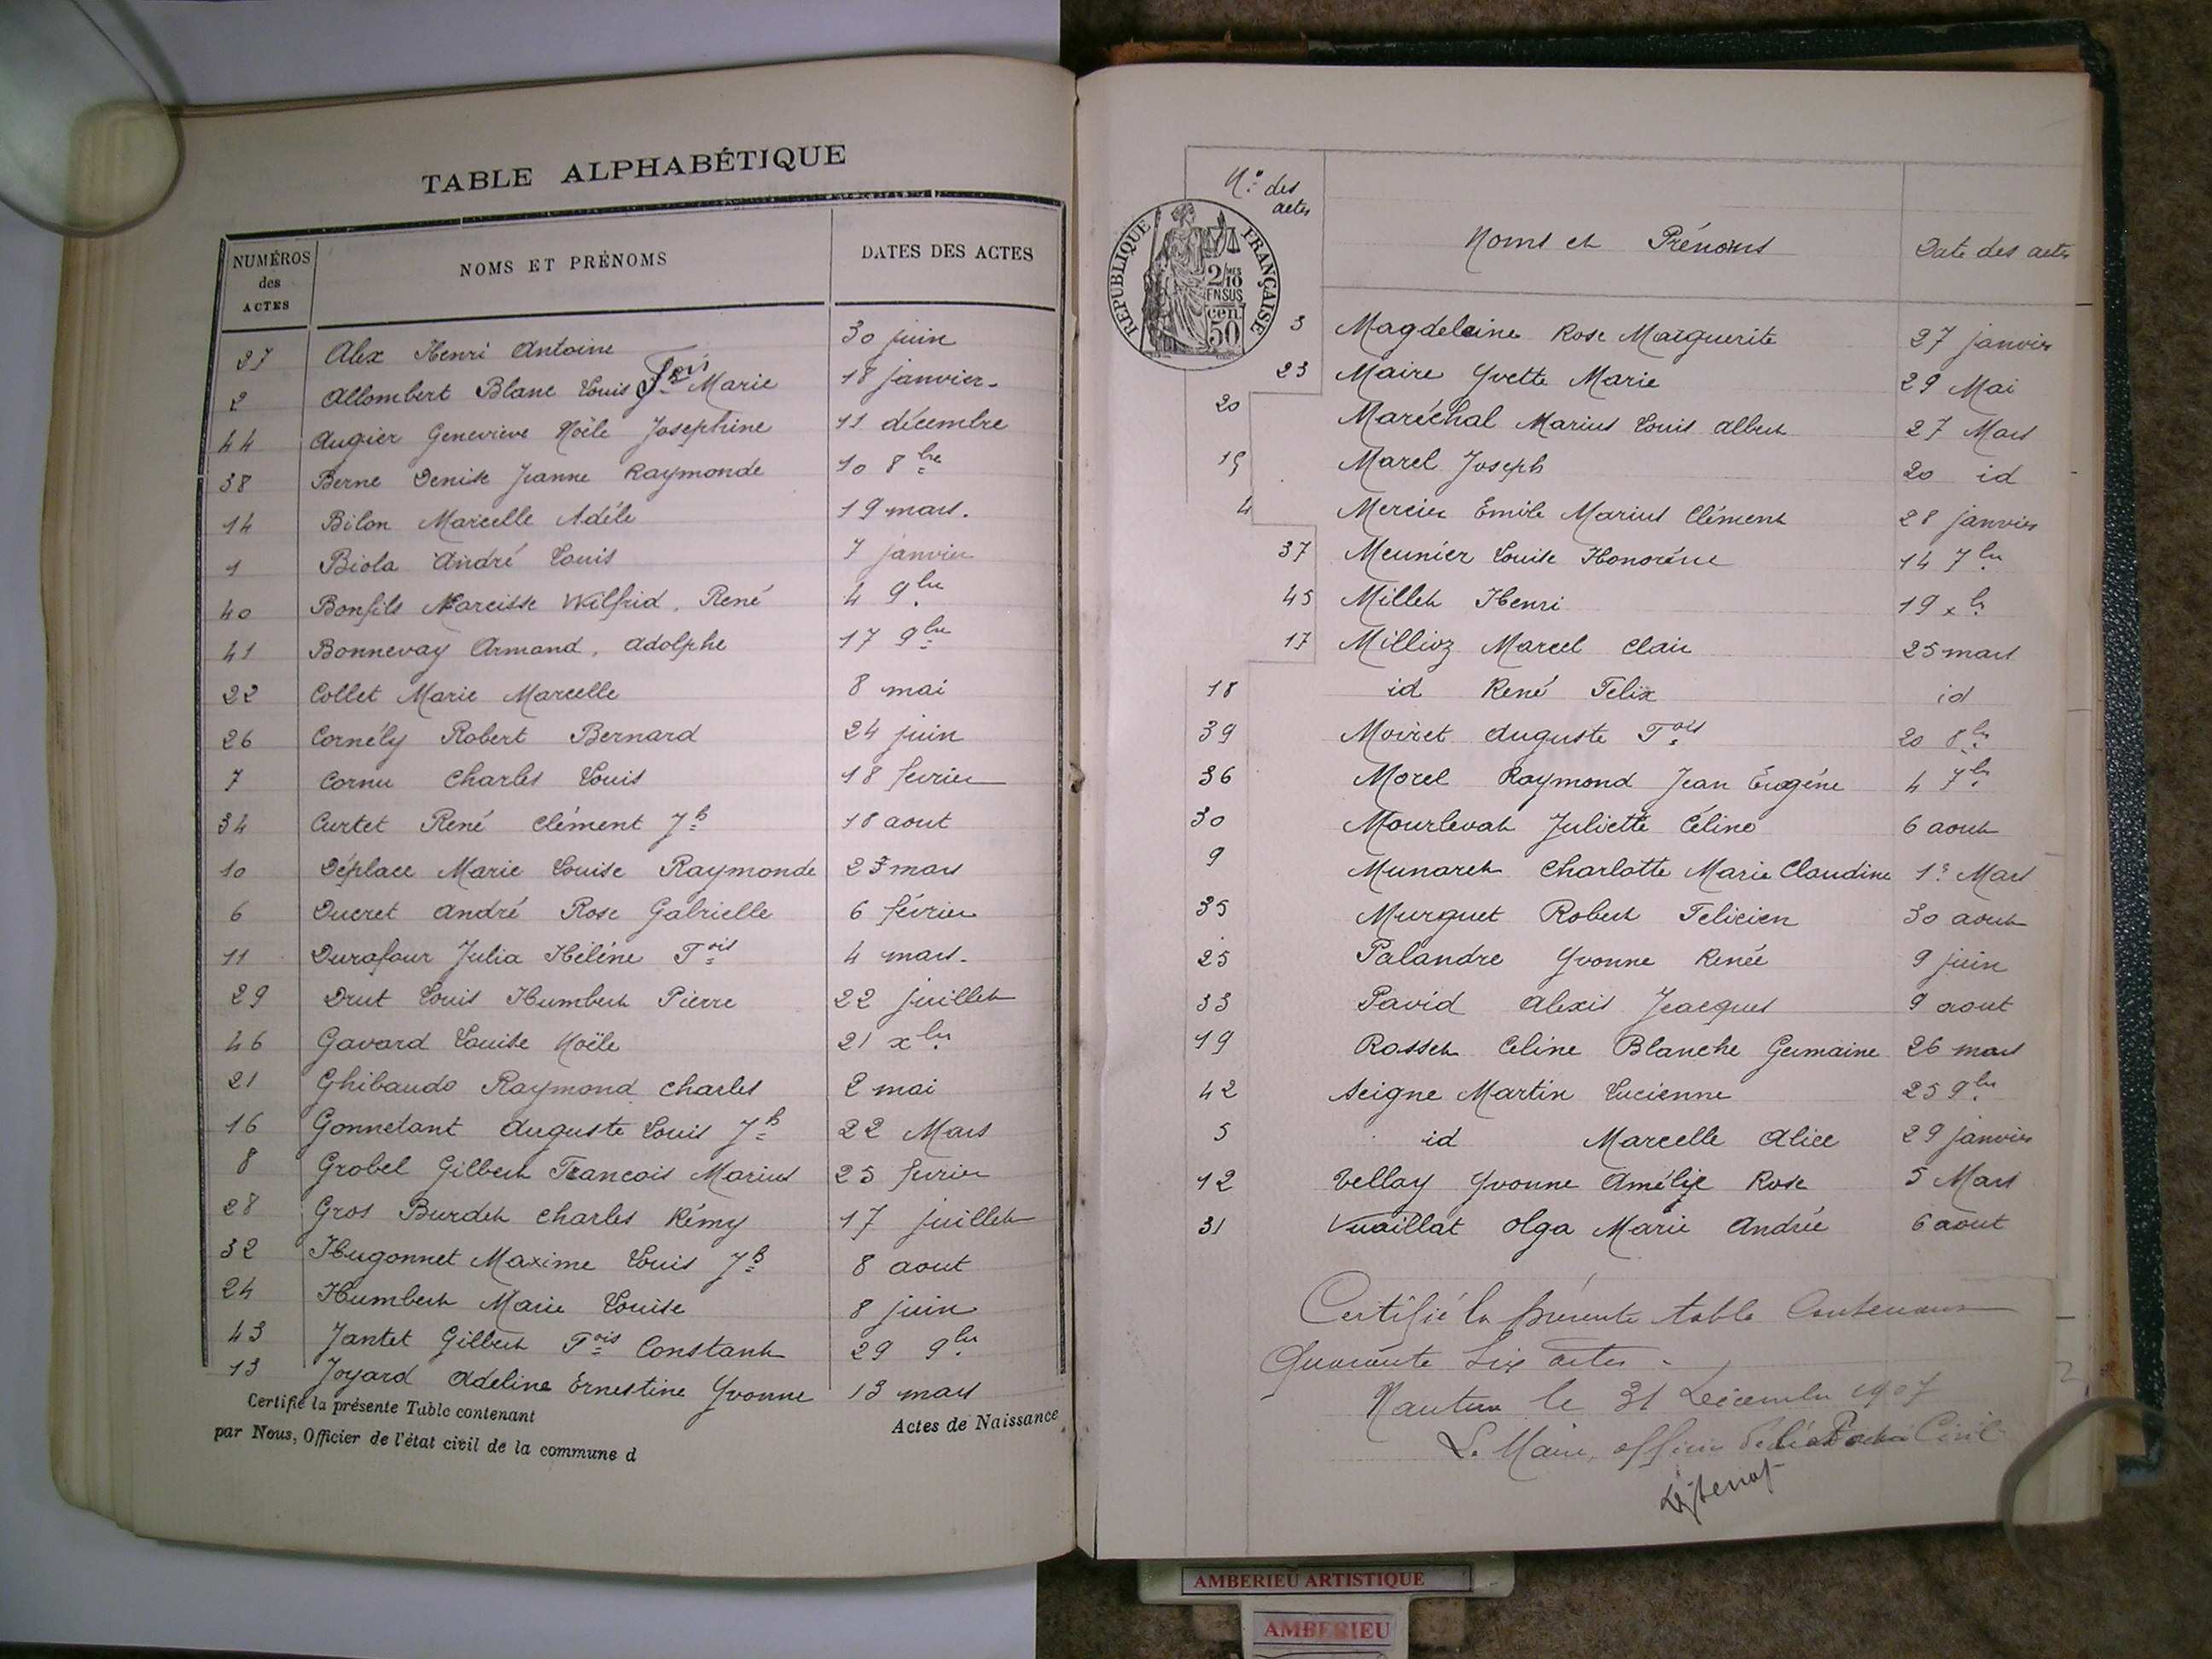 TABLE ALPHABÉTIQUE
NUMÉROS des ACTES NOMS ET PRÉNOMS DATES DES ACTES
27 Alex Henri Antoine 30 juin
2 Allombert Blanc Louis Fois Marie 18 janvier
44 Augier Geneviève Noële Josephine 11 décembre
38 Berne Denise Jeanne Raymonde 10 8bre
14 Bilon Marcelle Adèle 19 mars.
1 Biola André Louis 7 janvier
40 Bonfils Narcisse Wilfrid, René 4 9bre
41 Bonnevay Armand, Adolphe 17 9bre
22 Collet Marie Marcelle 8 mai
26 Cornély Robert Bernard 24 juin
7 Cornu Charles Louis 18 fevrier
34 Curtet René Clément Jh 18 aout
10 Déplace Marie Louise Raymonde 23 mars
6 Ducret André Rose Gabrielle 6 février
11 Durafour Julia Hélène Fois 4 mars.
29 Drut Louis Humbert Pierre 22 juillet
46 Gavard Louise Noële 21 xbre
21 Ghibaudo Raymond Charles 2 mai
16 Gonnetant Auguste Louis Jh 22 Mars
8 Grobel Gilbert Francois Marius 25 fevrier
28 Gros Burdet Charles Rémy 17 juillet
32 Hugonnet Maxime Louis Jh 8 aout
24 Humbert Marie Louise 8 juin
43 Jantet Gilbert Fois Constant 29 9bre
13 Joyard Adeline Ernestine Yvonne 13 mars
Certifié la présente Table contenant Actes de Naissance
par Nous, Officier de l'état civil de la commune d
Nos des actes Noms et Prénoms Date des actes
RÉPUBLIQUE FRANÇAISE
2/10 MES EN SUS
50 cen
3 Magdeleine Rose Marguerite 27 janvier
23 Maire Yvette Marie 29 Mai
20 Maréchal Marius Louis Albert 27 Mars
15 Marel Joseph 20 id
4 Mercier Emile Marius Clément 28 janvier
37 Meunier Louise Honorine 14 7bre
45 Millet Henri 19 xbre
17 Millioz Marcel Clair 25 mars
18 id René Felix id
39 Moiret Auguste Fois 20 8bre
36 Morel Raymond Jean Eugène 4 7bre
30 Mourlevat Juliette Céline 6 aout
9 Munaret Charlotte Marie Claudine 1er Mars
35 Murguet Robert Felicien 30 aout
25 Palandre Yvonne Renée 9 juin
33 Pavid Alexis Jacques 9 aout
19 Rosset Celine Blanche Germaine 26 mars
42 Seigne Martin Lucienne 25 9bre
5 id Marcelle Alice 29 janvier
12 Vellay Yvonne Amélie Rose 5 Mars
31 Vuaillat Olga Marie Andrée 6 aout
Certifié la présente table Contenant
Quarante Six actes.
Nantua le 31 Décembre 1907
Le Maire, officier de l'état Civil
AMBERIEU ARTISTIQUE
AMBERIEU